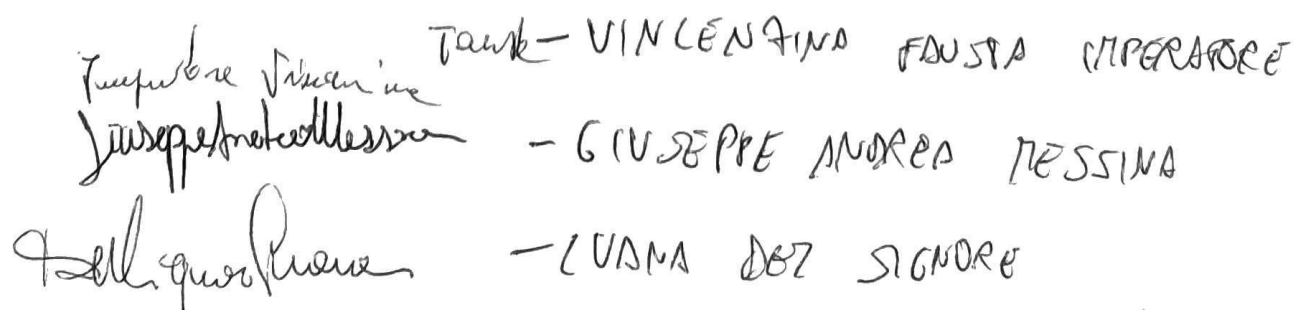 Imperatore Vincenzina - VINCENZINA FAUSTA IMPERATORE
Giuseppe Andrea Messina - GIUSEPPE ANDREA MESSINA
Del Signore Luana - LUANA DEL SIGNORE